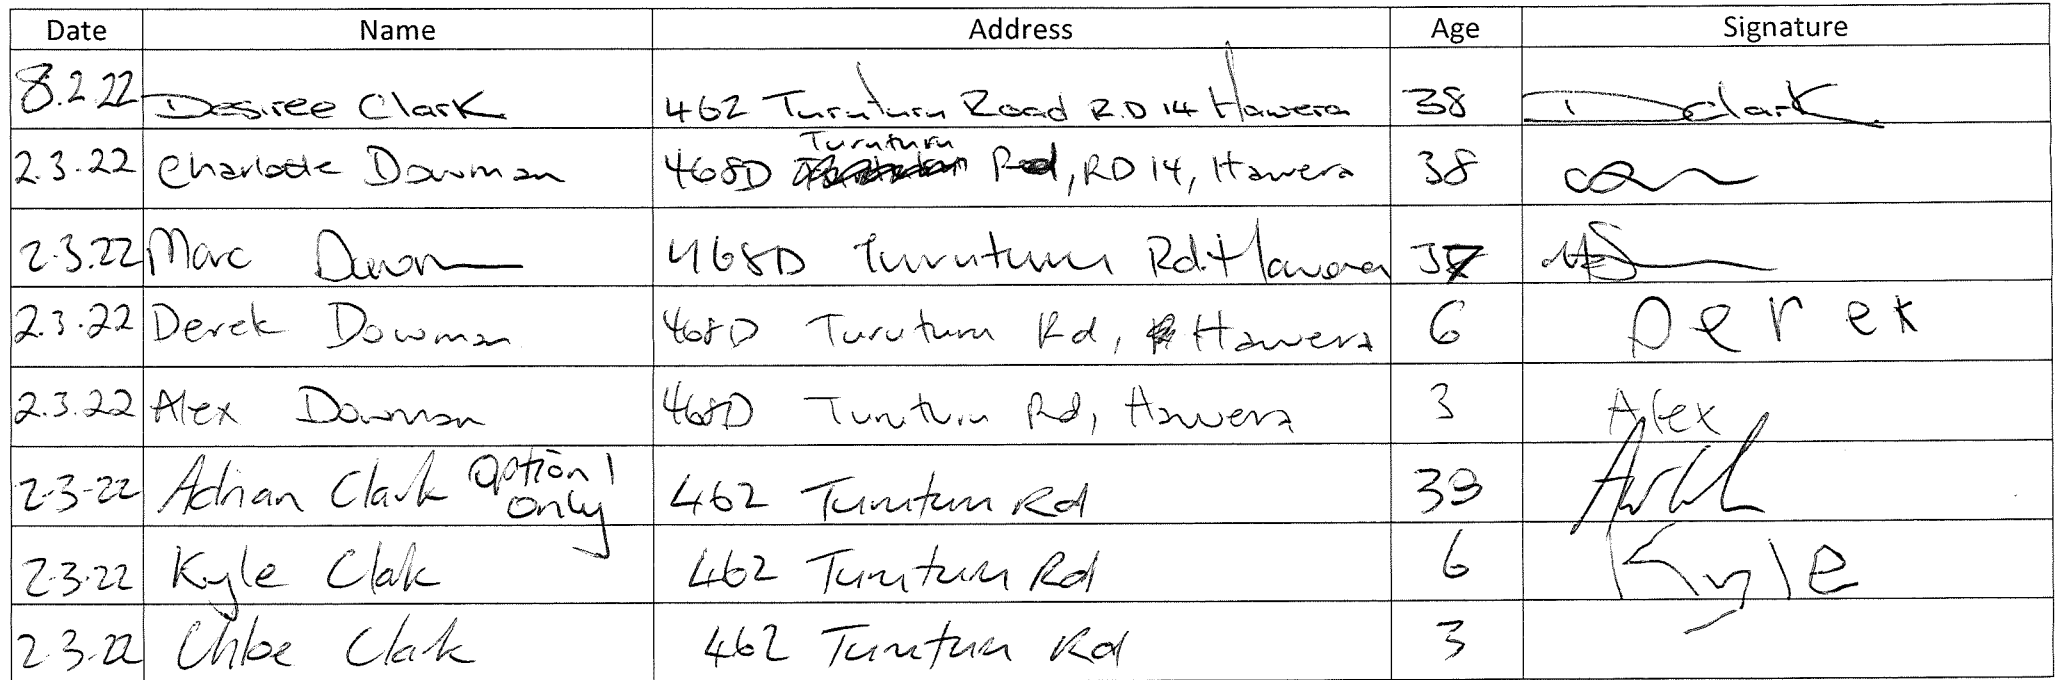 Date Name Address Age Signature
8.2.22 Desiree Clark 462 Turuturu Road R.D 14 Hawera 38 D Clark
Turuturu
2.3.22 Charlotte Dowman 468D Rd, RD 14, Hawera 38
2.3.22 Marc Dowman 468D Turuturu Rd. Hawera 37
2.3.22 Derek Dowman 468D Turuturu Rd, Hawera 6 Derek
2.3.22 Alex Dowman 468D Turuturu Rd, Hawera 3 Alex
2-3-22 Adrian Clark option 1 only 462 Turuturu Rd 39
2-3-22 Kyle Clark 462 Turuturu Rd 6 Kyle
2-3-22 Chloe Clark 462 Turuturu Rd 3